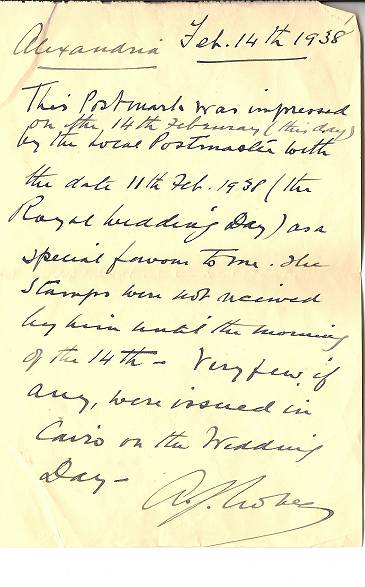 Alexandria Feb. 14th 1938
This Postmark was impressed
on the 14th February (this day)
by the Local Postmaster with
the date 11th Feb. 1938 (the
Royal Wedding Day) as a
special favour to me. The
Stamps were not received
by him until the morning
of the 14th - Very few, if
any, were issued in
Cairo on the Wedding
Day -